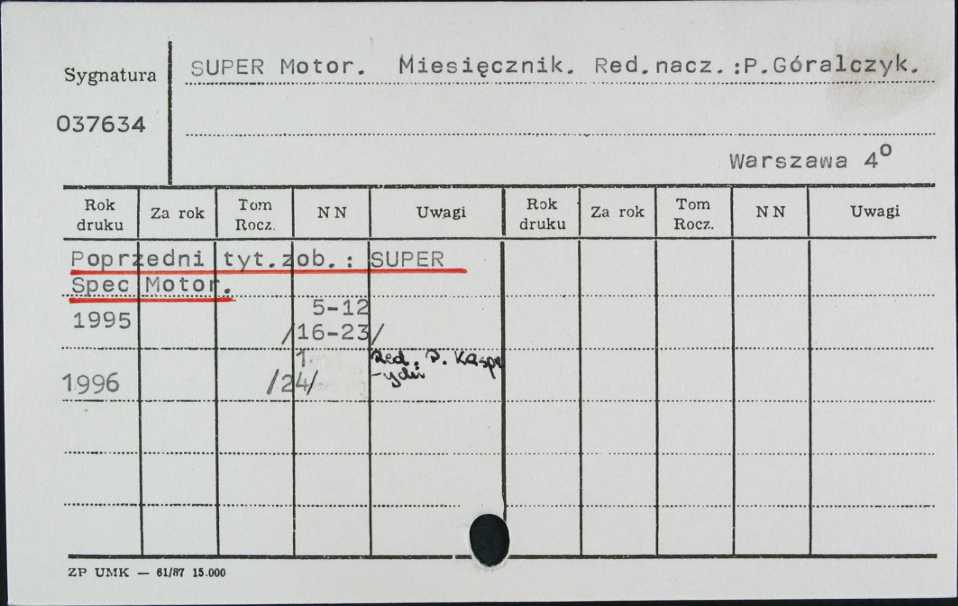 Sygnatura
SUPER Motor. Miesięcznik. Red.nacz.:P.Góralczyk.
037634
Warszawa 4º
Rok druku Za rok Tom Rocz. NN Uwagi Rok druku Za rok Tom Rocz. NN Uwagi
Poprzedni tyt.zob.: SUPER
Spec Motor.
1995 5-12
/16-23/
1 Red. P. Kasp
1996 /24/
ZP UMK — 61/87 15.000